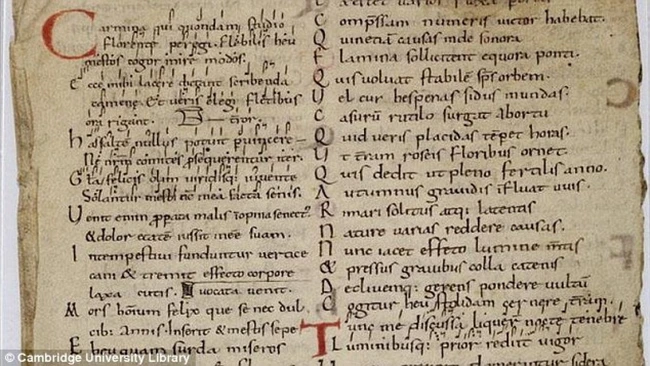 Carmina qui quondam studio
Florente peregi. Flebilis heu
mestos cogor inire modos.
Ecce mihi lacere dictant scribenda
camene. Et veris elegi fletibus
ora rigant. terror
has saltē nullus potuit pvincere
Ne nrm̄ comites psequerentur iter.
Gla felicis olim viridisq; iuvente
Solantur mesti nc mea facta senis.
Venit enim pperata malis inopina senect'
& dolor etatē iussit inee suam.
Intempestivi funduntur vertice
cani & tremit effecto corpore
laxa cutis. vocata venit.
Mors hominum felix que se nec dul
cib; Annis inserit & mestis sepe
Eheu quam surda miseros
Compressam numeris victor habebat.
Quinetiam causas unde sonora
Flamina sollicitent equora ponti.
Quis volvat stabilē sps orbem.
Vel cur hesperias sidus in undas.
Casurū rutilo surgat ab ortu
Quid veris placidas tēpet horas.
Ut trram roseis floribus ornet.
Quis dedit ut pleno fertilis anno.
Autumnus gravidis īfluat uvis.
Rimari solitus atq; latentis
Nature varias reddere causas.
Nunc iacet effeto lumine mtis
& pressus gravibus colla catenis
Declivemq; gerens pondere vultū
Cogitur heu stolidam cernere trram.
Tunc me discussa liquer nocte tenebre
Luminibusq; prior redit vigor
© Cambridge University Library